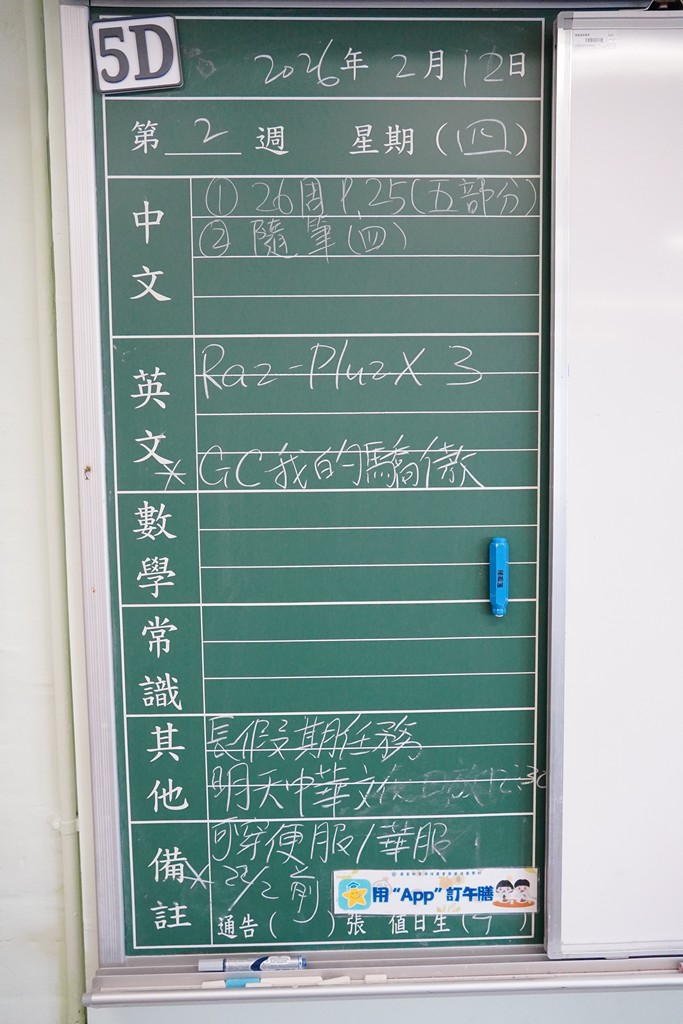 5D
2026年2月12日
第 2 週 星期(四)
中文
① 26周 P.25(五部分)
② 隨筆(四)
英文
Raz-Pluz X 3
* GC 我的驕傲
數學
常識
其他
長假期任務
明天中華文化
備註
可穿便服/華服
* 22/2 前
用“App”訂午膳
通告( )張 值日生( )